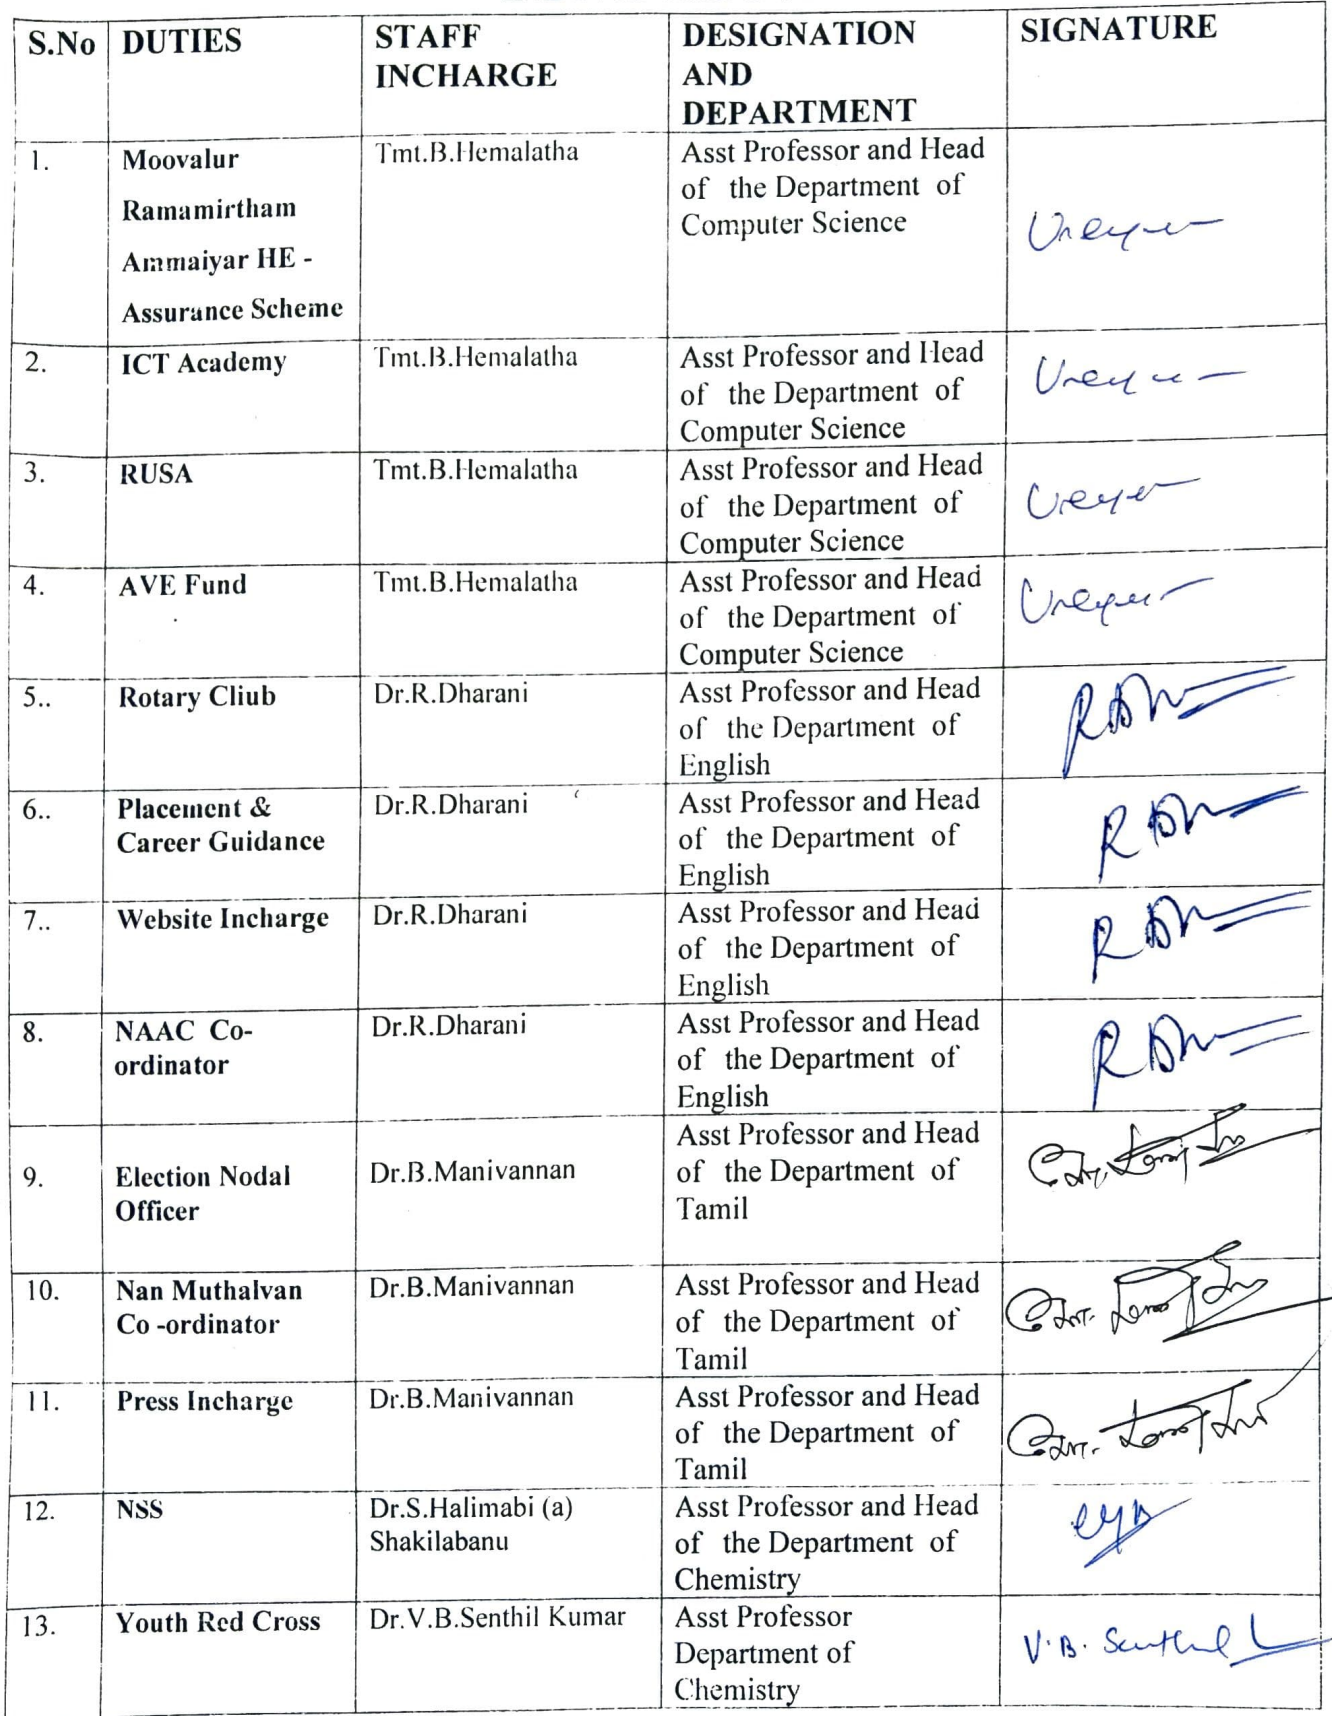 S.No DUTIES STAFF INCHARGE DESIGNATION AND DEPARTMENT SIGNATURE
1. Moovalur Ramamirtham Ammaiyar HE - Assurance Scheme Tmt.B.Hemalatha Asst Professor and Head of the Department of Computer Science
2. ICT Academy Tmt.B.Hemalatha Asst Professor and Head of the Department of Computer Science
3. RUSA Tmt.B.Hemalatha Asst Professor and Head of the Department of Computer Science
4. AVE Fund Tmt.B.Hemalatha Asst Professor and Head of the Department of Computer Science
5.. Rotary Cliub Dr.R.Dharani Asst Professor and Head of the Department of English
6.. Placement & Career Guidance Dr.R.Dharani Asst Professor and Head of the Department of English
7.. Website Incharge Dr.R.Dharani Asst Professor and Head of the Department of English
8. NAAC Co-ordinator Dr.R.Dharani Asst Professor and Head of the Department of English
9. Election Nodal Officer Dr.B.Manivannan Asst Professor and Head of the Department of Tamil
10. Nan Muthalvan Co -ordinator Dr.B.Manivannan Asst Professor and Head of the Department of Tamil
11. Press Incharge Dr.B.Manivannan Asst Professor and Head of the Department of Tamil
12. NSS Dr.S.Halimabi (a) Shakilabanu Asst Professor and Head of the Department of Chemistry
13. Youth Red Cross Dr.V.B.Senthil Kumar Asst Professor Department of Chemistry V.B. Senthil